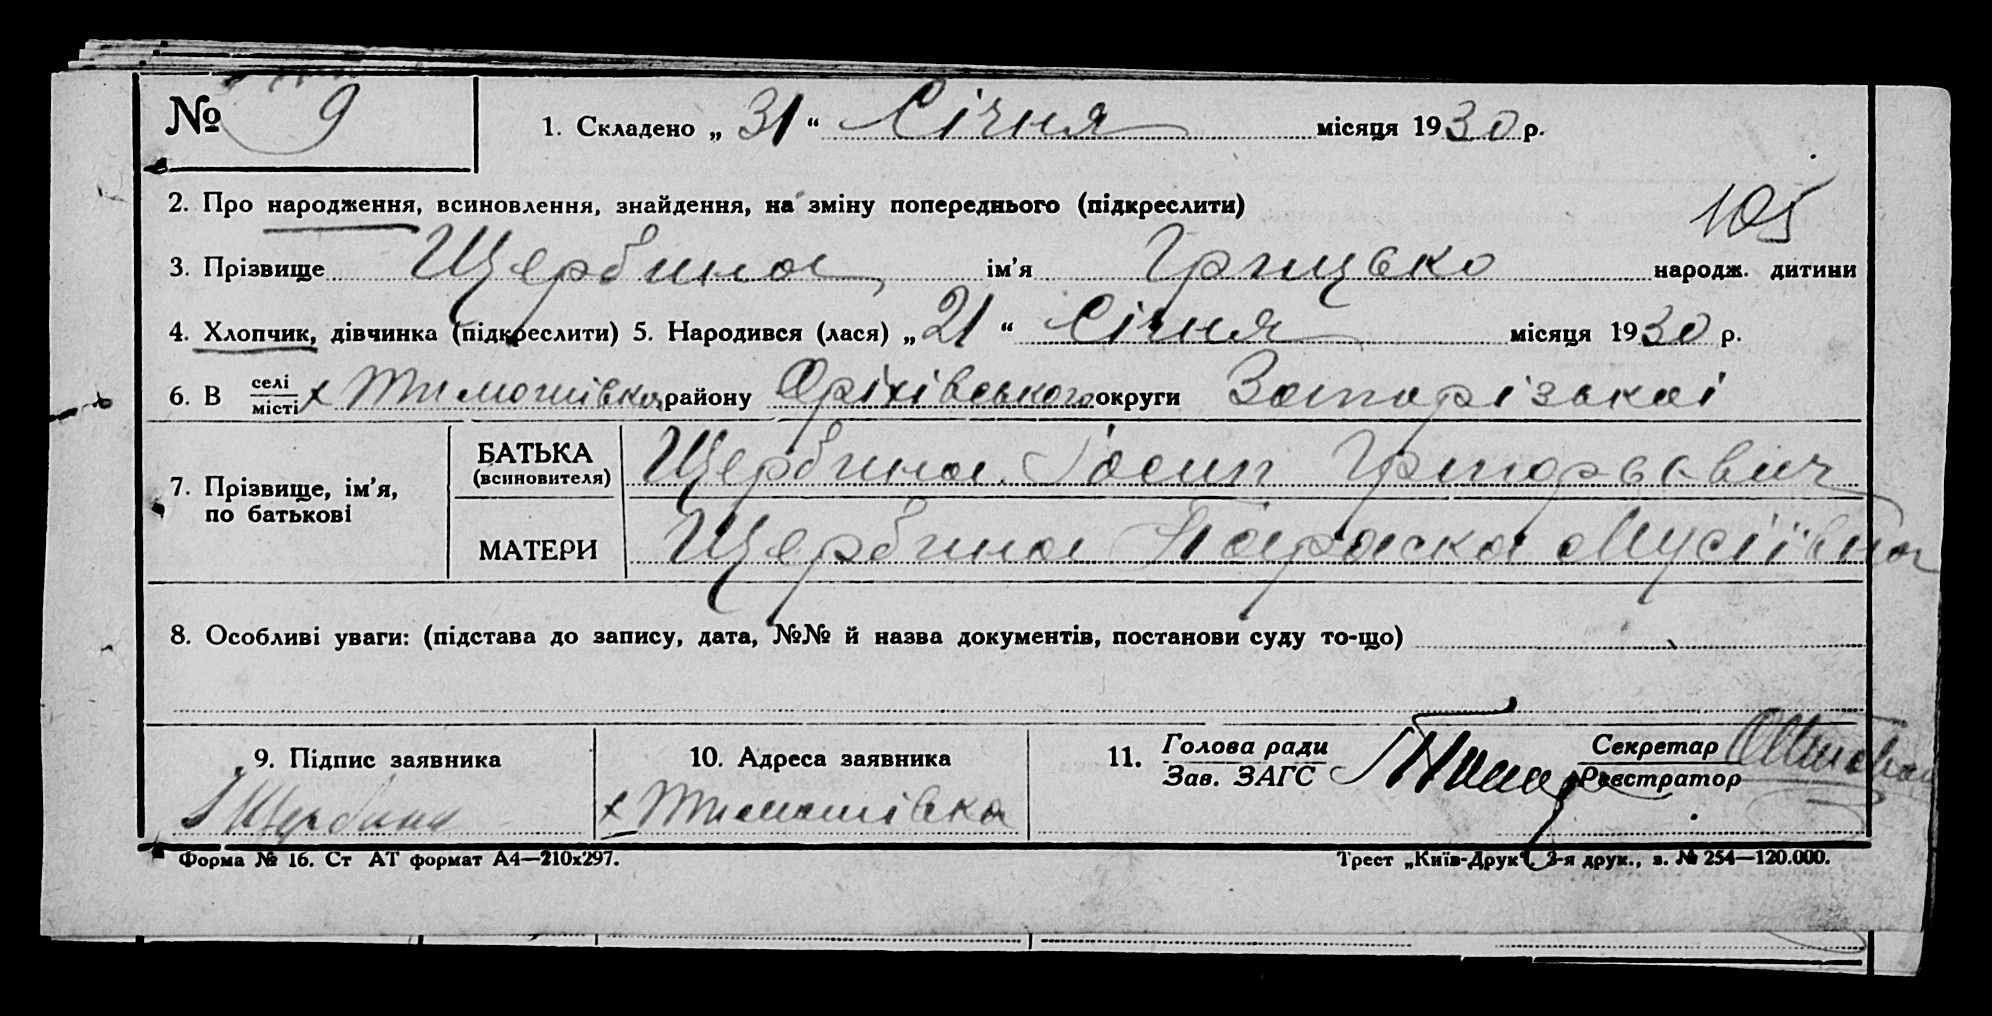 № 9
1. Складено „ 31 “ Січня місяця 1930 р.
2. Про народження, всиновлення, знайдення, на зміну попереднього (підкреслити)
105
3. Прізвище Щербина ім’я Грицько народж. дитини
4. Хлопчик, дівчинка (підкреслити) 5. Народився (лася) „ 21 “ Січня місяця 1930 р.
6. В селі місті х Тимошівка району Оріхівського округи Запорізької
7. Прізвище, ім’я, по батькові
БАТЬКА (всиновителя) Щербина Йосип Григорьевич
МАТЕРИ Щербина Параска Мусіївна
8. Особливі уваги: (підстава до запису, дата, №№ й назва документів, постанови суду то-що)
9. Підпис заявника
Щербина
10. Адреса заявника
х Тимошівка
11. Голова ради
Зав. ЗАГС
Секретар
Реєстратор
Форма № 16. Ст АТ формат А4—210х297.
Трест „Київ-Друк“. 3-я друк., з. № 254—120.000.